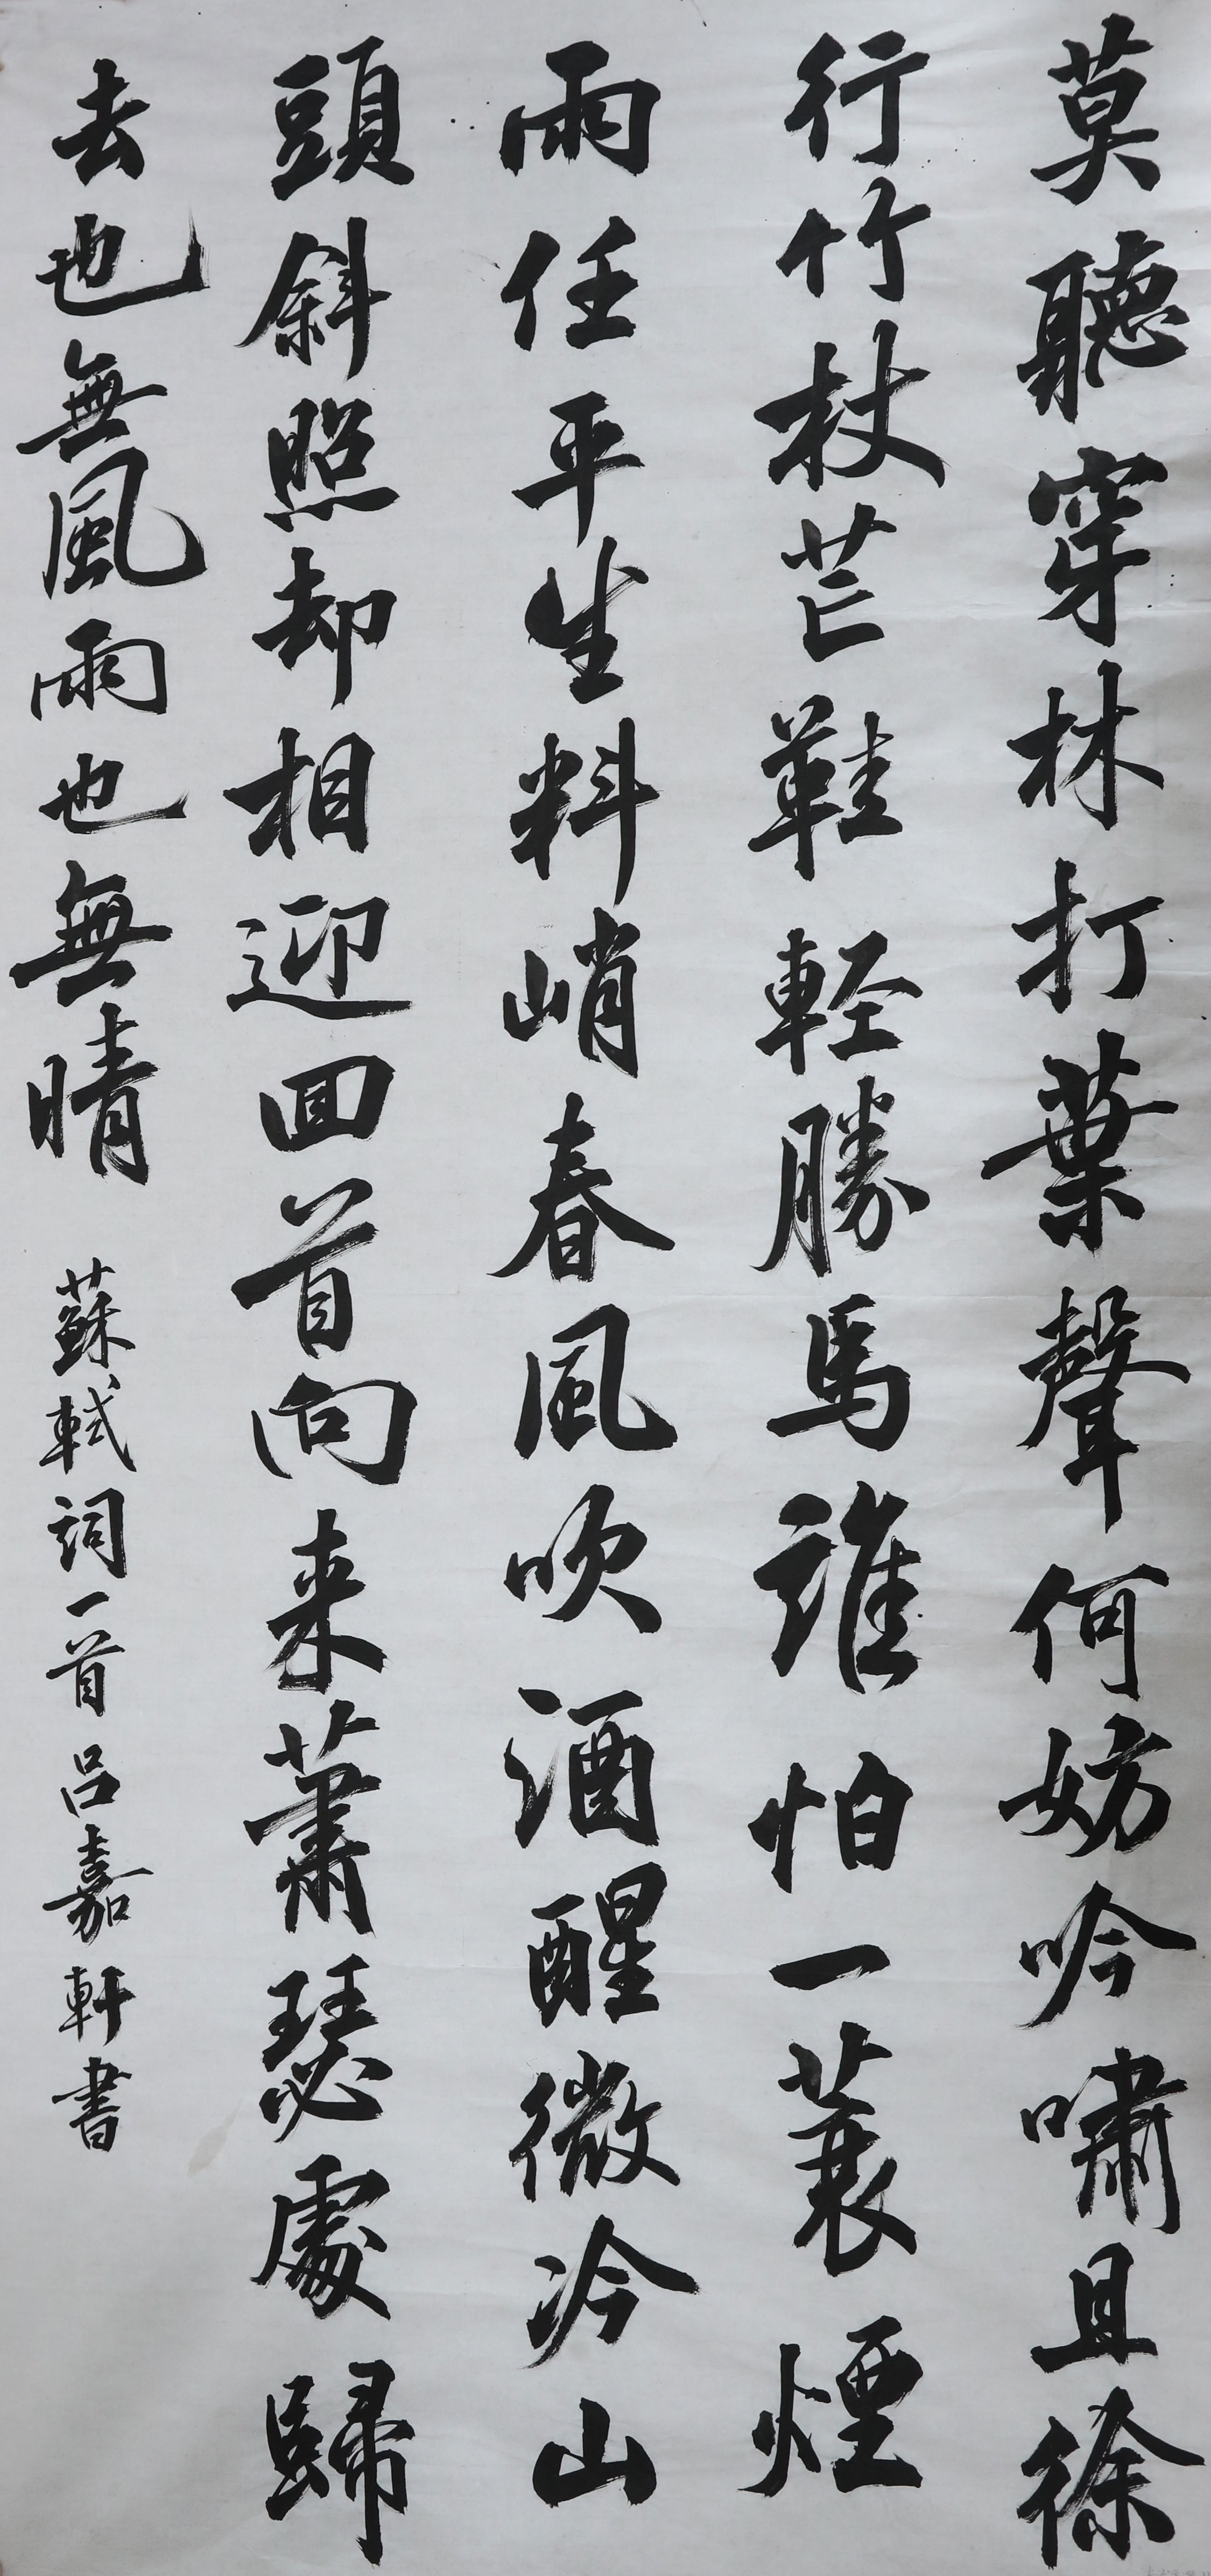 莫聽穿林打葉聲何妨吟嘯且徐
行竹杖芒鞋輕勝馬誰怕一蓑煙
雨任平生料峭春風吹酒醒微冷山
頭斜照却相迎回首向来蕭瑟處歸
去也無風雨也無晴 蘇軾詞一首 吕嘉軒書